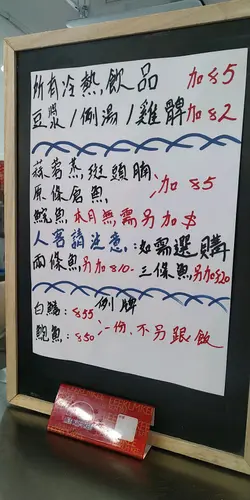 所有冷熱飲品 加$5
豆漿/例湯/雞髀 加$2
蒜蓉蒸斑頭腩
原條倉魚 :加$5
鯇魚本月無需另加$
人客請注意:如需選購
兩條魚另加$10-三條魚另加$20
例牌
白鱔:$55
鯇魚:$50 :-份,不另跟飯